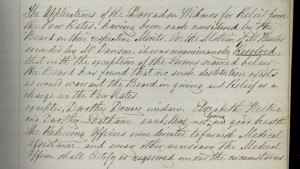 The Applications of the Barradon Widows for Relief from
the Poor Rates having been duly considered by the
Board on their respective Merits. On the Motion of Mr
seconded by Mr Dawson it was unanimously Resolved
that with the exception of the Persons named below
the Board has found that no such destitution exists
as would warrant the Board in giving any Relief as a
charge on the Poor Rates.
Dorothy widow. Elizabeth
Dorothy each being not in good health
the Relieving Officer was directed to furnish Medical
Assistance and any other necessary the Medical
Officer shall Certify is required under the circumstances.